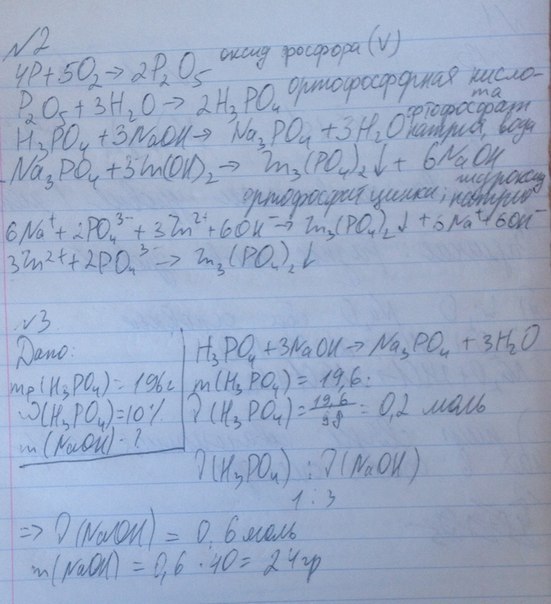 №2
4P+5O₂→2P₂O₅ оксид фосфора (V)
P₂O₅+3H₂O→2H₃PO₄ ортофосфорная кислота
H₃PO₄+3NaOH→Na₃PO₄+3H₂O ортофосфат натрия, вода
Na₃PO₄+3Zn(OH)₂→Zn₃(PO₄)₂↓+6NaOH
ортофосфат цинка; гидроксид натрия
6Na⁺+2PO₄³⁻+3Zn²⁺+6OH⁻→Zn₃(PO₄)₂↓+6Na⁺+6OH⁻
3Zn²⁺+2PO₄³⁻→Zn₃(PO₄)₂↓
№3
Дано:
mр(H₃PO₄)=196г
ω(H₃PO₄)=10%
m(NaOH)-?
H₃PO₄+3NaOH→Na₃PO₄+3H₂O
m(H₃PO₄)=19,6г
ν(H₃PO₄)=19,6/98=0,2 моль
ν(H₃PO₄):ν(NaOH)
1:3
⇒ν(NaOH)=0,6моль
m(NaOH)=0,6·40=24гр